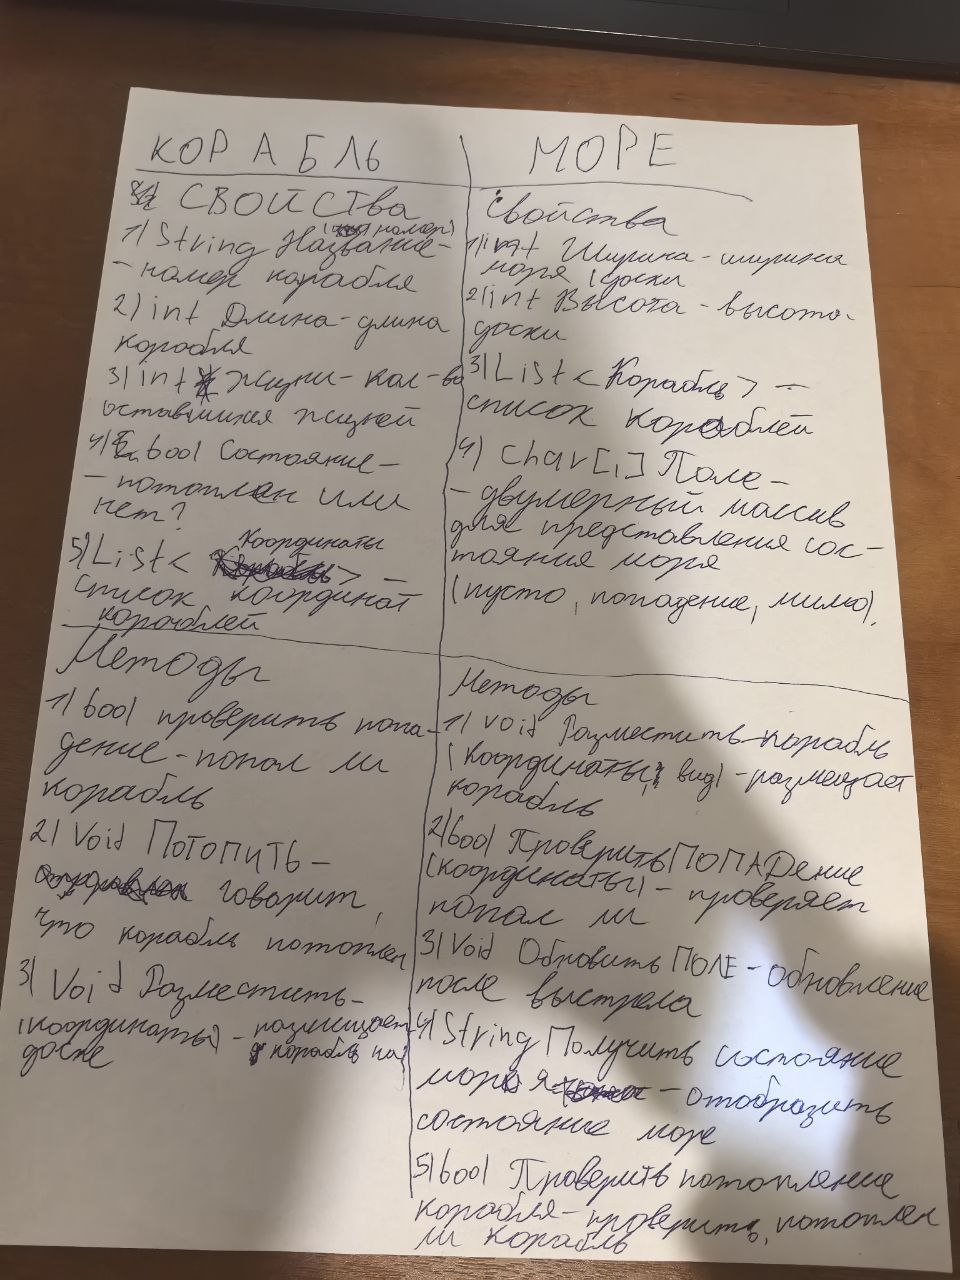 КОРАБЛЬ
СВОЙСТВа
(номер)
1) String Название-
- номер корабля
2) int Длина - длина
корабля
3) int Жизни - кол-во
оставшихся жизней
4) bool Состояние -
- потоплен или
нет?
Координаты
5) List < > -
список координат
кораблей
Методы
1) bool проверить попа-
дение - попал ли
корабль
2) Void ПОТОПИТЬ -
говорит,
что корабль потоплен
3) Void Разместить-
(координаты) - размещает
корабль на
доске
МОРЕ
Свойства
1) int Ширина - ширина
моря (доски
2) int Высота - высота
доски
3) List < Корабль > -
список кораблей
4) Char[,] Поле -
- двумерный массив
для представления сос-
тояние моря
(пусто, попадение, мимо).
Методы
1) void Разместить корабль
(координаты, вид) - размещает
корабль
2) bool Проверить ПОПАДение
(координаты) - проверяет
попал ли
3) Void Обновить ПОЛЕ - обновление
после выстрела
4) String Получить состояние
моря - отобразить
состояние море
5) bool Проверить потопление
корабля - проверить, потоплен
ли корабль